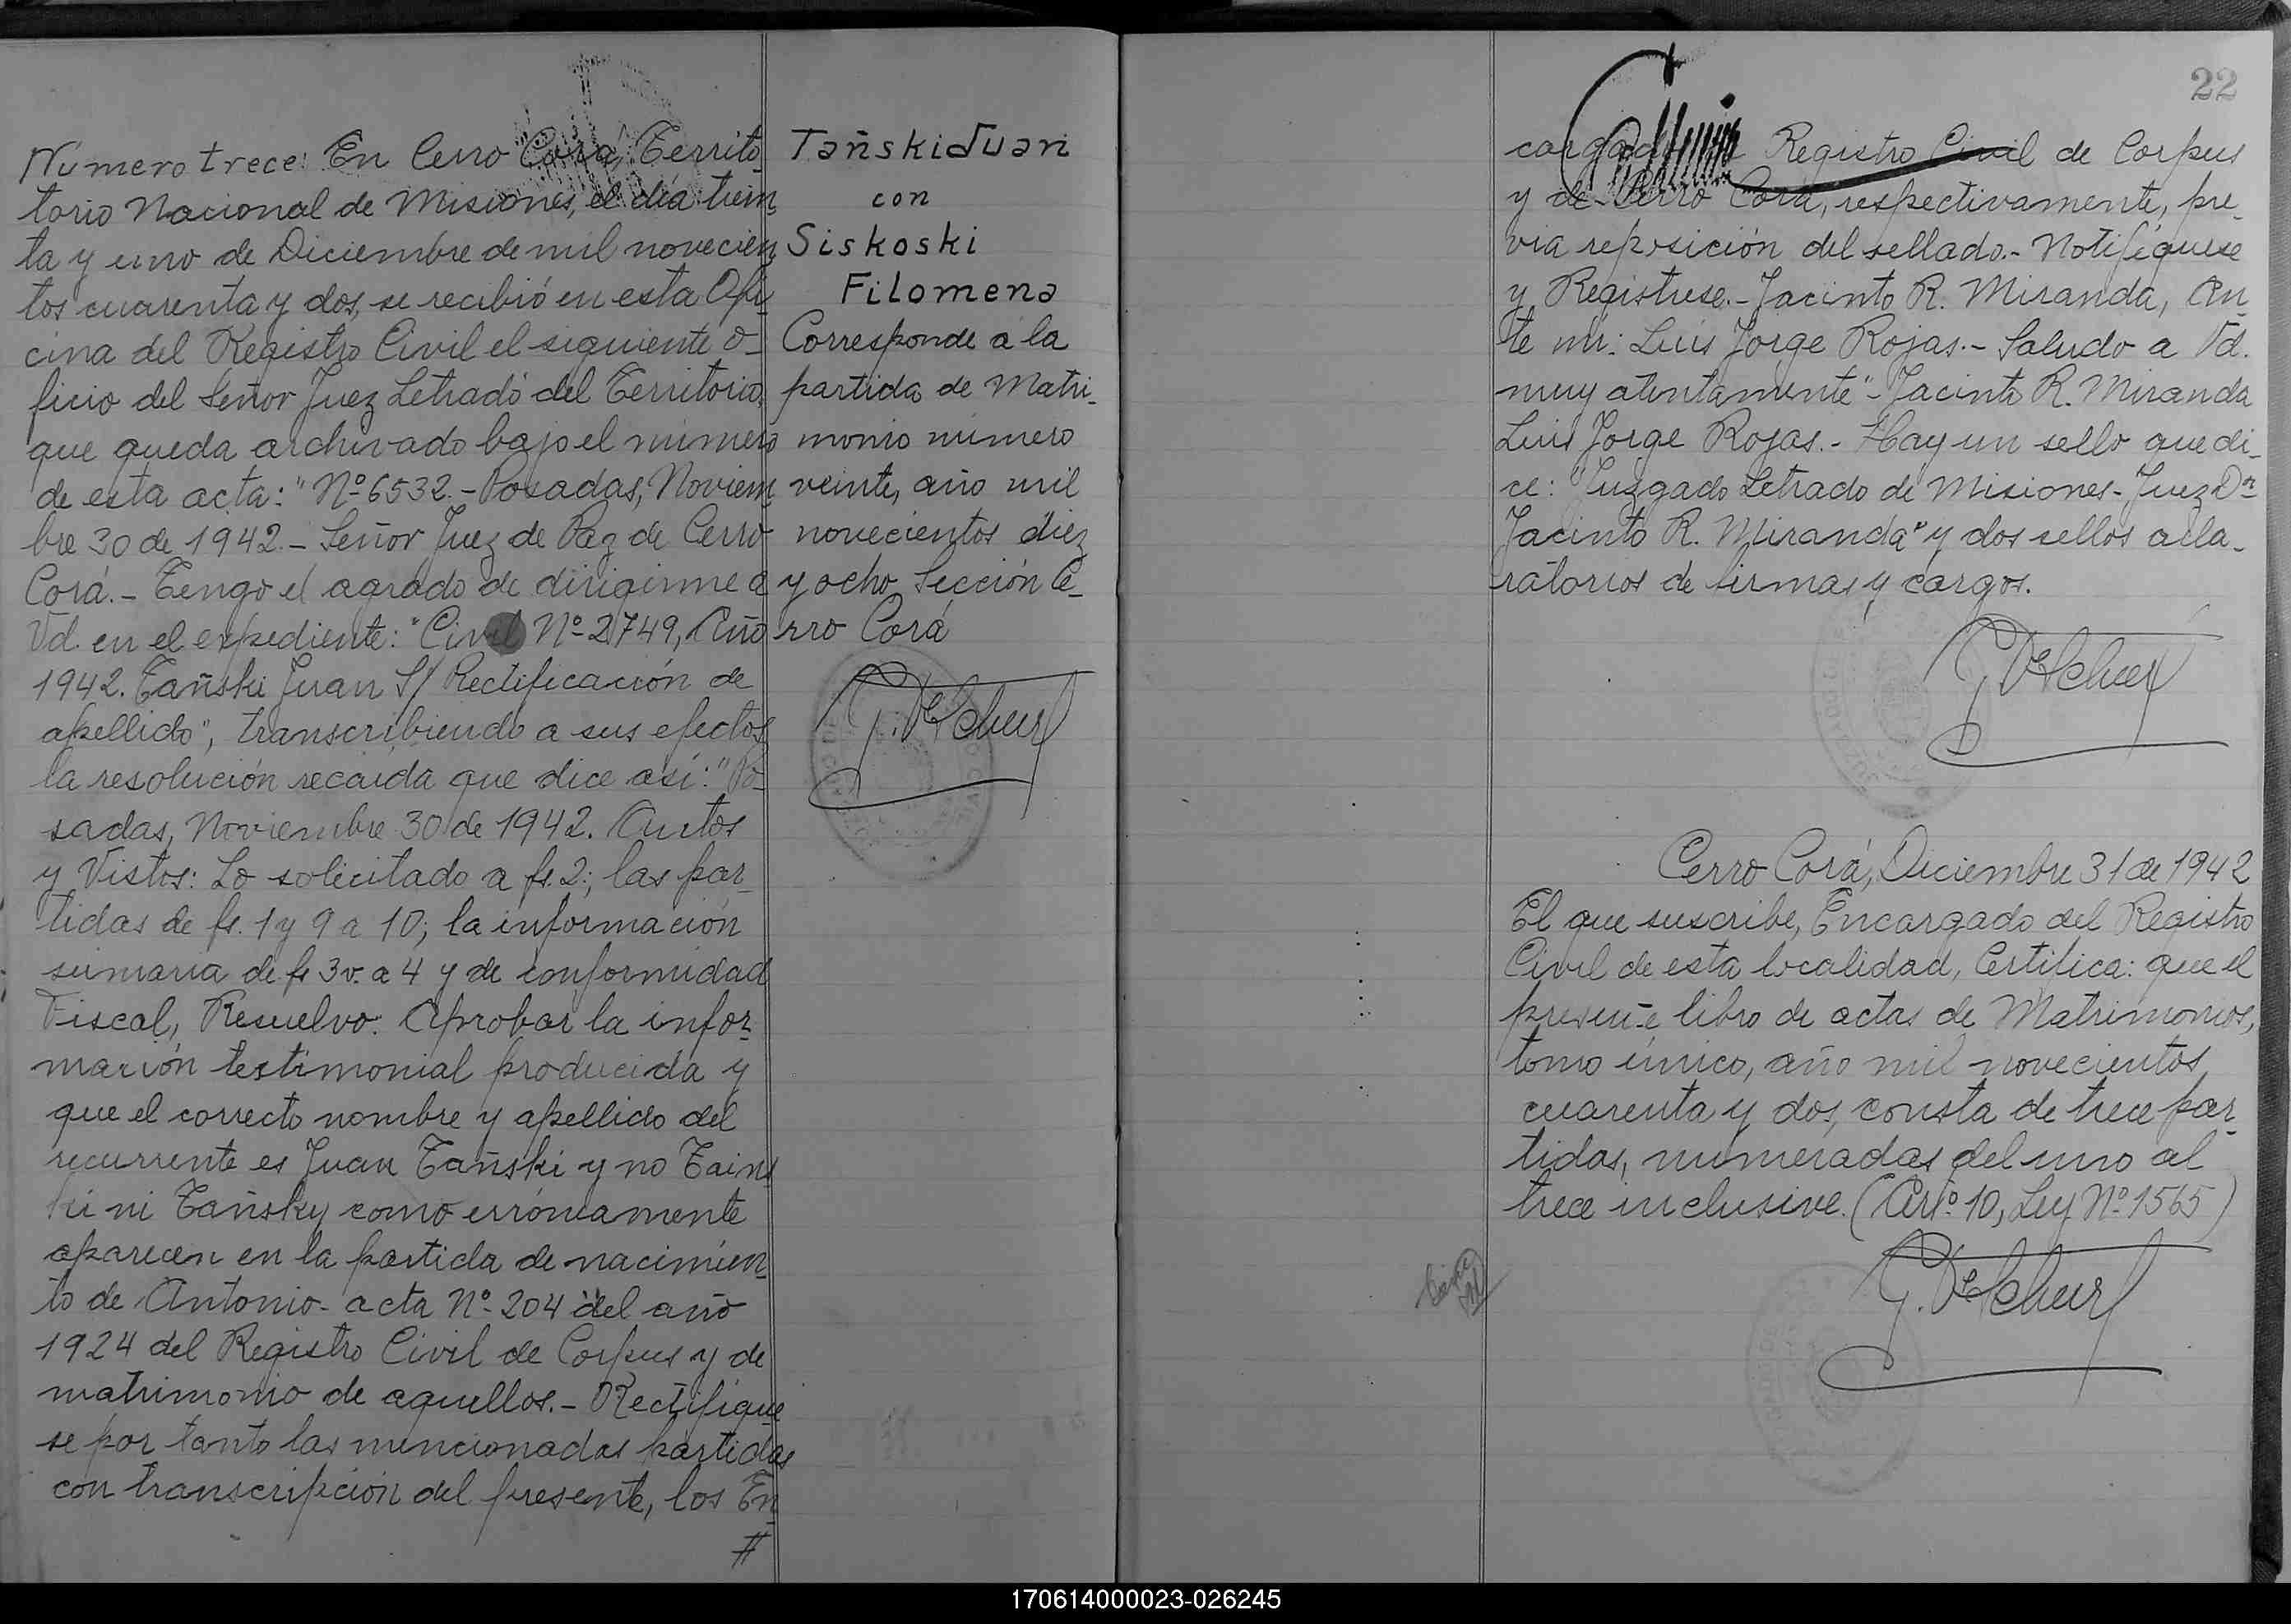 Número trece: En Cerro Corá, Territo-
torio Nacional de Misiones, el día trein-
ta y uno de Diciembre de mil novecien
tos cuarenta y dos, se recibió en esta Ofi-
cina del Registro Civil el siguiente o-
ficio del Señor Juez Letrado del Territorio,
que queda archivado bajo el número
de esta acta: "Nº 6532.- Posadas, Noviem
bre 30 de 1942.- Señor Juez de Paz de Cerro
Corá.- Tengo el agrado de dirigirme a
Vd. en el expediente: "Civil Nº 2749, Año
1942. Tañski Juan S/ Rectificación de
apellido", transcribiendo a sus efectos
la resolución recaída que dice así: "Po-
sadas, Noviembre 30 de 1942. Autos
y Vistos: Lo solicitado a fs. 2; las par-
tidas de fs. 1 y 9 a 10; la información
sumaria de fs 3v. a 4 y de conformidad
Fiscal, Resuelvo: Aprobar la infor-
mación testimonial producida y
que el correcto nombre y apellido del
recurrente es Juan Tañski y no Tains
ki ni Tañsky como erróneamente
aparecen en la partida de nacimien-
to de Antonio- acta Nº 204 del año
1924 del Registro Civil de Corpus y de
matrimonio de aquellos.- Rectifíque
se por tanto las mencionadas partidas
con transcripción del presente, los En-
#
Tañski Juan
con
Siskoski
Filomena
Corresponde a la
partida de Matri-
monio número
veinte, año mil
novecientos diez
y ocho Sección Ce-
rro Corá
22
cargados Registro Civil de Corpus
y de Cerro Corá, respectivamente, pre-
via reposición del sellado.- Notifíquese
y Regístrese.- Jacinto R. Miranda, An-
te mí: Luis Jorge Rojas.- Saludo a Vd.
muy atentamente"- Jacinto R. Miranda
Luis Jorge Rojas.- Hay un sello que di-
ce: "Juzgado Letrado de Misiones- Juez Dr
Jacinto R. Miranda" y dos sellos acla-
ratorios de firmas y cargos.
Cerro Corá, Diciembre 31 de 1942
El que suscribe, Encargado del Registro
Civil de esta localidad, Certifica: que el
presente libro de actas de Matrimonios,
tomo único, año mil novecientos
cuarenta y dos, consta de trece par-
tidas, numeradas del uno al
trece inclusive. (Artº 10, Ley Nº 1565)
170614000023-026245